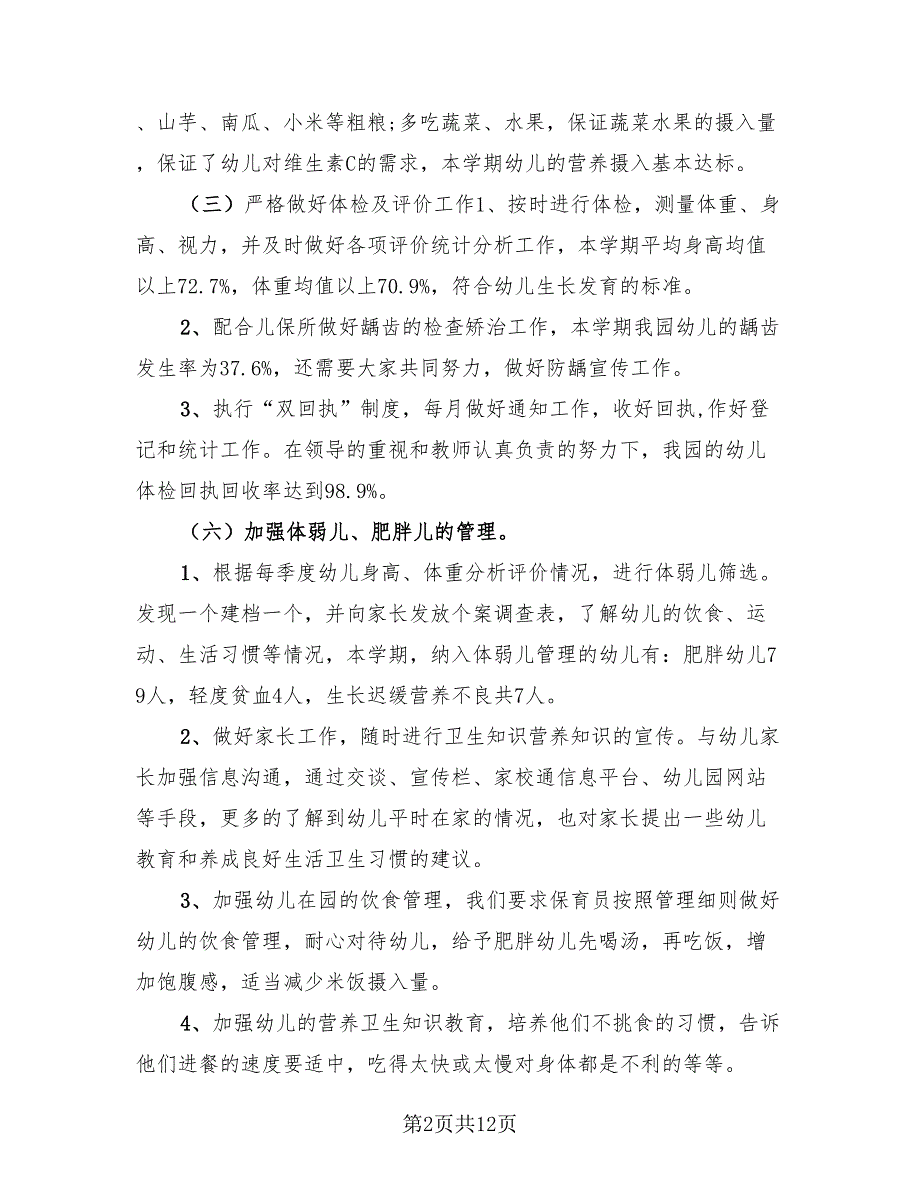 、山芋、南瓜、小米等粗粮;多吃蔬菜、水果，保证蔬菜水果的摄入量
，保证了幼儿对维生素C的需求，本学期幼儿的营养摄入基本达标。
（三）严格做好体检及评价工作1、按时进行体检，测量体重、身
高、视力，并及时做好各项评价统计分析工作，本学期平均身高均值
以上72.7%，体重均值以上70.9%，符合幼儿生长发育的标准。
2、配合儿保所做好龋齿的检查矫治工作，本学期我园幼儿的龋齿
发生率为37.6%，还需要大家共同努力，做好防龋宣传工作。
3、执行“双回执”制度，每月做好通知工作，收好回执,作好登
记和统计工作。在领导的重视和教师认真负责的努力下，我园的幼儿
体检回执回收率达到98.9%。
（六）加强体弱儿、肥胖儿的管理。
1、根据每季度幼儿身高、体重分析评价情况，进行体弱儿筛选。
发现一个建档一个，并向家长发放个案调查表，了解幼儿的饮食、运
动、生活习惯等情况，本学期，纳入体弱儿管理的幼儿有：肥胖幼儿7
9人，轻度贫血4人，生长迟缓营养不良共7人。
2、做好家长工作，随时进行卫生知识营养知识的宣传。与幼儿家
长加强信息沟通，通过交谈、宣传栏、家校通信息平台、幼儿园网站
等手段，更多的了解到幼儿平时在家的情况，也对家长提出一些幼儿
教育和养成良好生活卫生习惯的建议。
3、加强幼儿在园的饮食管理，我们要求保育员按照管理细则做好
幼儿的饮食管理，耐心对待幼儿，给予肥胖幼儿先喝汤，再吃饭，增
加饱腹感，适当减少米饭摄入量。
4、加强幼儿的营养卫生知识教育，培养他们不挑食的习惯，告诉
他们进餐的速度要适中，吃得太快或太慢对身体都是不利的等等。
第2页共12页